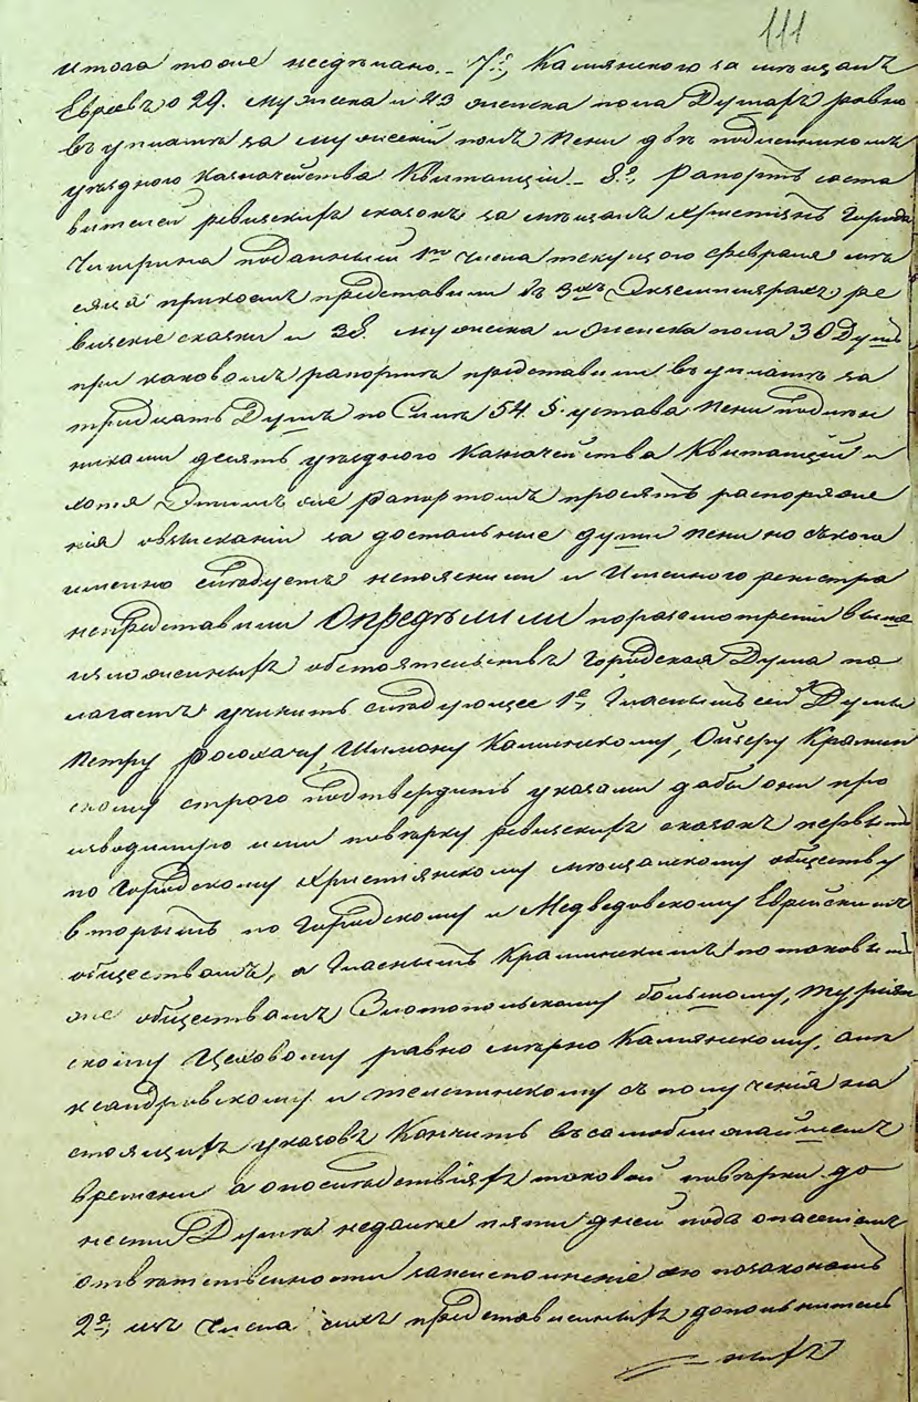 111
итога тоже несдѣлано. – 7е, Каменского за мѣщанъ
Евреевъ о 29. мужеска и 43 женска пола Душахъ равно
въ уплатѣ за мужескій полъ пени двѣ подлѣнникомъ
уѣздного Казначейства Квитанціи – 8е, Рапортъ соста
вителей ревизскихъ сказокъ за мѣщанъ христіянъ Города
Чигрина поданный 1го числа текущого февраля мѣ
сяца прикоемъ представили въ 3хъ Экземплярахъ ре
визскіе сказки и 38. мужеска и женска пола 30 Душъ
при каковомъ рапортѣ представили въ уплатѣ за
тридцать Душъ по Силѣ 54. §. устава пени подлѣн
никами десять уѣздного Казначейства Квитанцій и
хотя Этимъ же рапортомъ просятъ распоряже
нія овзысканіи за достальные души пени но съкого
именно слѣдуетъ непояснили и Именного регистра
непредставили Опредѣлили поразсмотреніи выше
изложенныхъ обстоятельствъ Городская Дума по
лагаетъ учинить слѣдующее 1е, Гласнымъ сей Думы
Петру Шимону Калинскому, Ойзеру Крамин
скому строго подтвердить указами дабы они про
изводимую ими повѣрку ревизскихъ сказокъ первый
по Городскому христіянскому мѣщанскому обществу
вторымъ по Городскому и Медведовскому Еврейскимъ
обществамъ, а Гласнымъ Краминскимъ по таковымъ
же обществамъ Златопольскому большому, Турiян
скому Цеховому равно Каменскому, але
ксандровскому и телепинскому съ полученія на
стоящихъ указовъ Кончить въсамоближайшемъ
времени а опослѣдствіяхъ таковой повѣрки до
нести Думѣ недалѣе пяти дней подъ опасеніемъ
отвѣтственности занеисполненіе позаконамъ
2е, изъ числа сихъ представленныхъ дополнитель
ныхъ